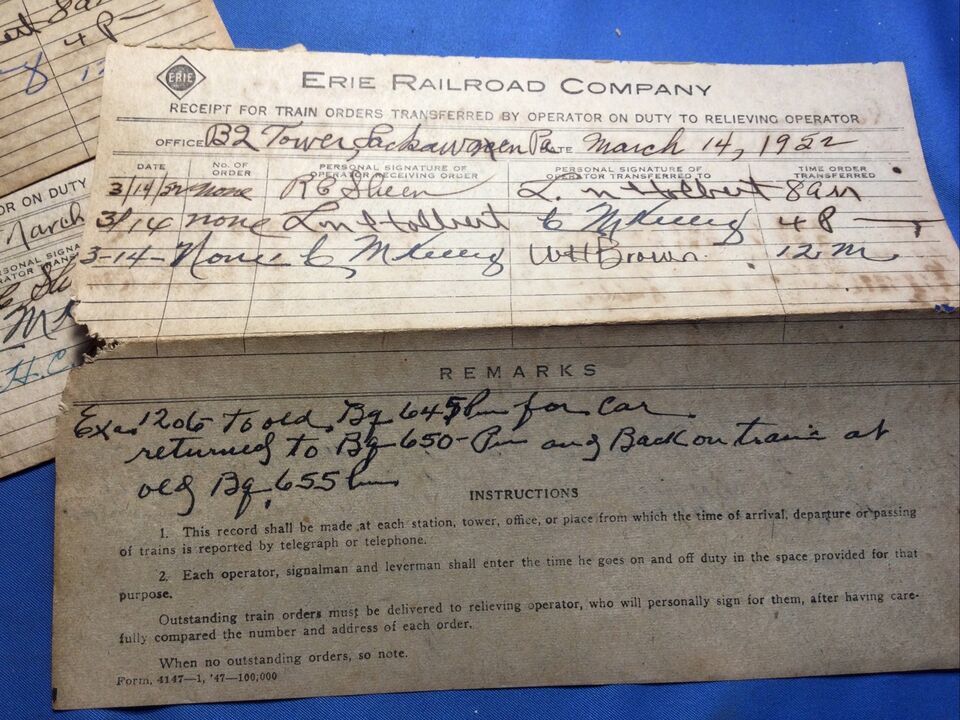 ERIE
ERIE RAILROAD COMPANY
RECEIPT FOR TRAIN ORDERS TRANSFERRED BY OPERATOR ON DUTY TO RELIEVING OPERATOR
OFFICE BQ Tower Lackawaxen Pa DATE March 14, 1952
DATE No. OF ORDER PERSONAL SIGNATURE OF OPERATOR RECEIVING ORDER PERSONAL SIGNATURE OF OPERATOR TRANSFERRED TO TIME ORDER TRANSFERRED
3/14/52 none R C Sheen L. M Holbert 8 am
3/14 none L M Holbert C McKenny 4 P
3-14- None C McKenny W H Brown 12 M
REMARKS
Exa. 1206 to old Bq 645 Pm for car
returned to Bq 650 Pm and Back on train at
old Bq 655 Pm
INSTRUCTIONS
1. This record shall be made at each station, tower, office, or place from which the time of arrival, departure or passing
of trains is reported by telegraph or telephone.
2. Each operator, signalman and leverman shall enter the time he goes on and off duty in the space provided for that
purpose.
Outstanding train orders must be delivered to relieving operator, who will personally sign for them, after having care-
fully compared the number and address of each order.
When no outstanding orders, so note.
Form. 4147—1, '47—100,000
4 P
OR ON DUTY
March
H.C.